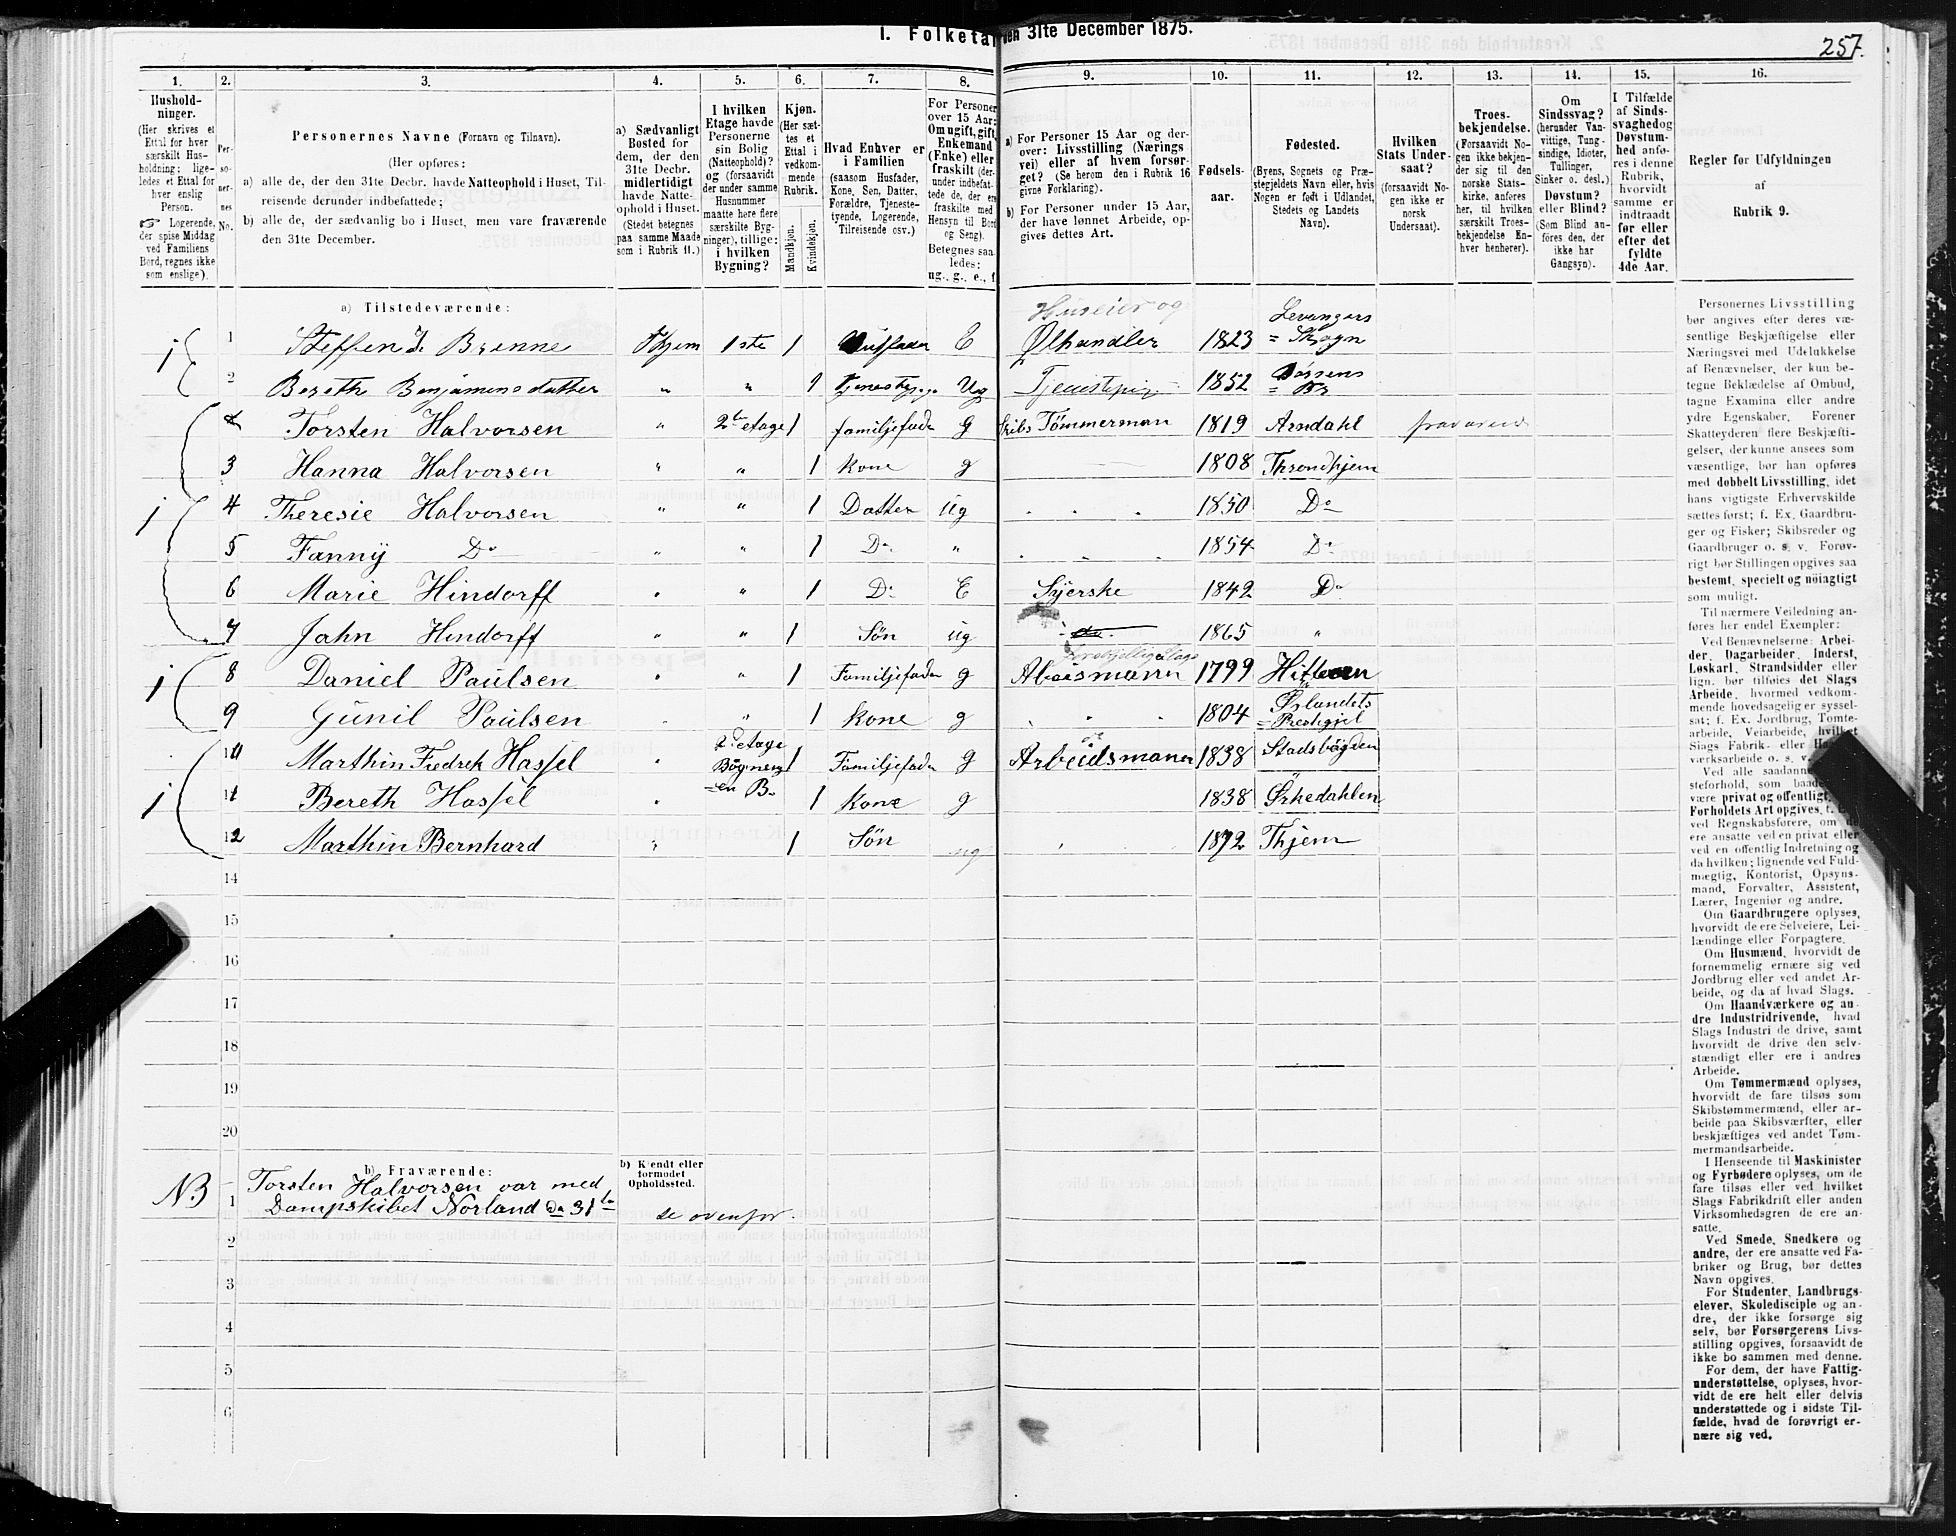 1. Folketal den 31te December 1875.
257.
1. 2. 3. 4. 5. 6. 7. 8. 9. 10. 11. 12. 13. 14. 15. 16.
Hushold-
ninger.
(Her skrives et
Ettal for hver
særskilt Hus-
holdning; lige-
ledes et Ettal for
hver enslig
Person.
☞ Logerende,
der spise Middag
ved Familiens
Bord, regnes ikke
som enslige).
Per-
so-
ner-
nes
No.
Personernes Navne (Fornavn og Tilnavn).
(Her opføres:
a) alle de, der den 31te Decbr. havde Natteophold i Huset, Til-
reisende derunder indbefattede;
b) alle de, der sædvanlig bo i Huset, men vare fraværende
den 31te December.
a) Sædvanligt
Bosted for
dem, der den
31te Decbr.
midlertidigt
havde Natte-
ophold i Huset.
(Stedet betegnes
paa samme Maade
som i Rubrik 11.)
I hvilken
Etage havde
Personerne
sin Bolig
(Natteophold)?
og (forsaavidt
der under samme
Husnummer
maatte høre flere
særskilte Byg-
ninger), tillige:
i hvilken
Bygning?
Kjøn.
(Her sæt-
tes et
Ettal i
vedkom-
mende
Rubrik.
Mandkjøn.
Kvindekjøn.
Hvad Enhver er
i Familien
(saasom Husfader,
Kone, Søn, Datter,
Forældre, Tjeneste-
tyende, Logerende,
Tilreisende osv.)
For Personer
over 15 Aar:
Om ugift, gift,
Enkemand
(Enke) eller
fraskilt (der-
under indbefat-
tede de, der ere
fraskilte med
Hensyn til Bord
og Seng).
Betegnes saa-
ledes:
ug., g., e., f.
a) For Personer 15 Aar og der-
over: Livsstilling (Nærings-
vei) eller af hvem forsør-
get? (Se herom den i Rubrik 16
givne Forklaring).
b) For Personer under 15 Aar,
der have lønnet Arbeide, op-
gives dettes Art.
Fødsels-
aar.
Fødested.
(Byens, Sognets og Præ-
stegjeldets Navn eller, hvis
Nogen er født i Udlandet,
Stedets og Landets
Navn).
Hvilken
Stats Under-
saat?
(forsaavidt No-
gen ikke er
norsk
Undersaat).
Troes-
bekjendelse.
(Forsaavidt No-
gen ikke bekjen-
der sig til den
norske Stats-
kirke, anføres
her, til hvilken
særskilt Troes-
bekjendelse En-
hver henhører).
Om
Sindssvag?
(herunder Van-
vittige, Tung-
sindige, Idioter,
Tullinger,
Sinker o. desl.)
Døvstum?
eller Blind?
(Som Blind an-
føres den, der
ikke har
Gangsyn).
I Tilfælde
af Sinds-
svaghed og
Døvstum-
hed anfø-
res i denne
Rubrik,
hvorvidt
samme er
indtraadt
før eller
efter det
fyldte
4de Aar.
Regler for Udfyldningen
af
Rubrik 9.
a) Tilstedeværende:
Huseier og Levangers
1 1 Steffen J. Brenne Thjem 1ste 1 Husfader E Ølhandler 1823 = Skogn
2 Bereth Benjaminsdatter " " 1 Ug Tjenestepige 1852 Børsens
Torsten Halvorsen " 2den etage 1 familjefader G Skibs Tømmerman 1819 Arndahl fraværend
3 Hanna Halvorsen " " 1 Kone g 1808 Throndhjem
1 4 Theresie Halvorsen " " 1 Datter ug 1850 Do
5 Fanny Do " " 1 Do " 1854 Do
6 Marie Hindorff " " 1 Do E Syerske 1842 Do
7 Jahn Hindorff " " 1 Søn ug do. 1865 "
forskjellig Slags
1 8 Daniel Paulsen " " 1 Familjefader g 1799 Hitteren
9 Gunil Paulsen " 1 Kone g 1804 Ørlandets
= Prestegjel
10 Marthin Fredrek Hassel 2d etage 1 Familjefader G Arbeidsmann 1838 Stadsbygden
Bygning
en B.
1 11 Bereth Hassel " 1 Kone g 1838 Ørkedahlen
12 Marthin Bernhard " 1 Søn ug 1872 Thjem
14
15
16
17
18
19
20
b) Fraværende:
b) Kjendt eller
formodet
Opholdssted.
NB 1 Torsten Halvorsen var med
Dampskibet Norland da 31te se ovenfor.
2
3
4
5
6
Personernes Livsstilling
bør angives efter deres væ-
sentlige Beskjæftigelse eller
Næringsvei med Udelukkelse
af Benævnelser, der kun be-
tegne Beklædelse af Ombud,
tagne Examina eller andre
ydre Egenskaber. Forener
Skatteyderen flere Beskjæfti-
gelser, der kunne ansees som
væsentlige, bør han opføres
med dobbelt Livsstilling, idet
hans vigtigste Erhvervskilde
sættes først; f. Ex. Gaardbru-
ger og Fisker; Skibsreder og
Gaardbruger o. s. v. Forøv-
rigt bør Stillingen opgives saa
bestemt, specielt og nøiagtigt
som muligt.
Til nærmere Veiledning an-
føres her endel Exempler:
Ved Benævnelserne: Arbei-
der, Dagarbeider, Inderst,
Løskarl, Strandsidder eller
lign. bør tilføies det Slags
Arbeide, hvormed vedkom-
mende hovedsagelig er syssel-
sat; f. Ex. Jordbrug, Tomte-
arbeide, Veiarbeide, hvilket
Slags Fabrik- eller
værksarbeide o. s. v.
Ved alle saadanne
steforhold, som baade
være privat og offentligt,
Forholdets Art opgives, t. Ex.
ved Regnskabsførere, om de
ere ansatte ved en privat eller
ved en offentlig Indretning og
da hvilken; lignende ved Fuld-
mægtig, Kontorist, Opsyns-
mand, Forvalter, Assistent,
Lærer, Ingeniør og andre.
Om Gaardbrugere oplyses,
hvorvidt de ere Selveiere, Lei-
lændinge eller Forpagtere.
Om Husmænd, hvorvidt de
fornemmelig ernære sig ved
Jordbrug eller ved andet Ar-
beide, og da af hvad Slags.
Om Haandværkere og an-
dre Industridrivende, hvad
Slags Industri de drive, samt
hvorvidt de drive den selv-
stændigt eller ere i andres
Arbeide.
Om Tømmermænd oplyses,
hvorvidt de fare tilsøs som
Skibstømmermænd, eller ar-
beide paa Skibsværfter, eller
beskjæftiges ved andet Tøm-
mermandsarbeide.
I Henseende til Maskinister
og Fyrbødere oplyses, om de
fare tilsøs eller ved hvilket
Slags Fabrikdrift eller anden
Virksomhedsgren de ere an-
satte.
Ved Smede, Snedkere og
andre, der ere ansatte ved Fa-
briker og Brug, bør dettes
Navn opgives.
For Studenter, Landbrugs-
elever, Skoledisciple og an-
dre, der ikke forsørge sig
selv, bør Forsørgerens Livs-
stilling opgives, forsaavidt de
ikke bo sammen med denne.
For dem, der have Fattig-
understøttelse, oplyses, hvor-
vidt de ere helt eller delvis
understøttede og i sidste Til-
fælde, hvad de forøvrigt er-
nære sig ved.